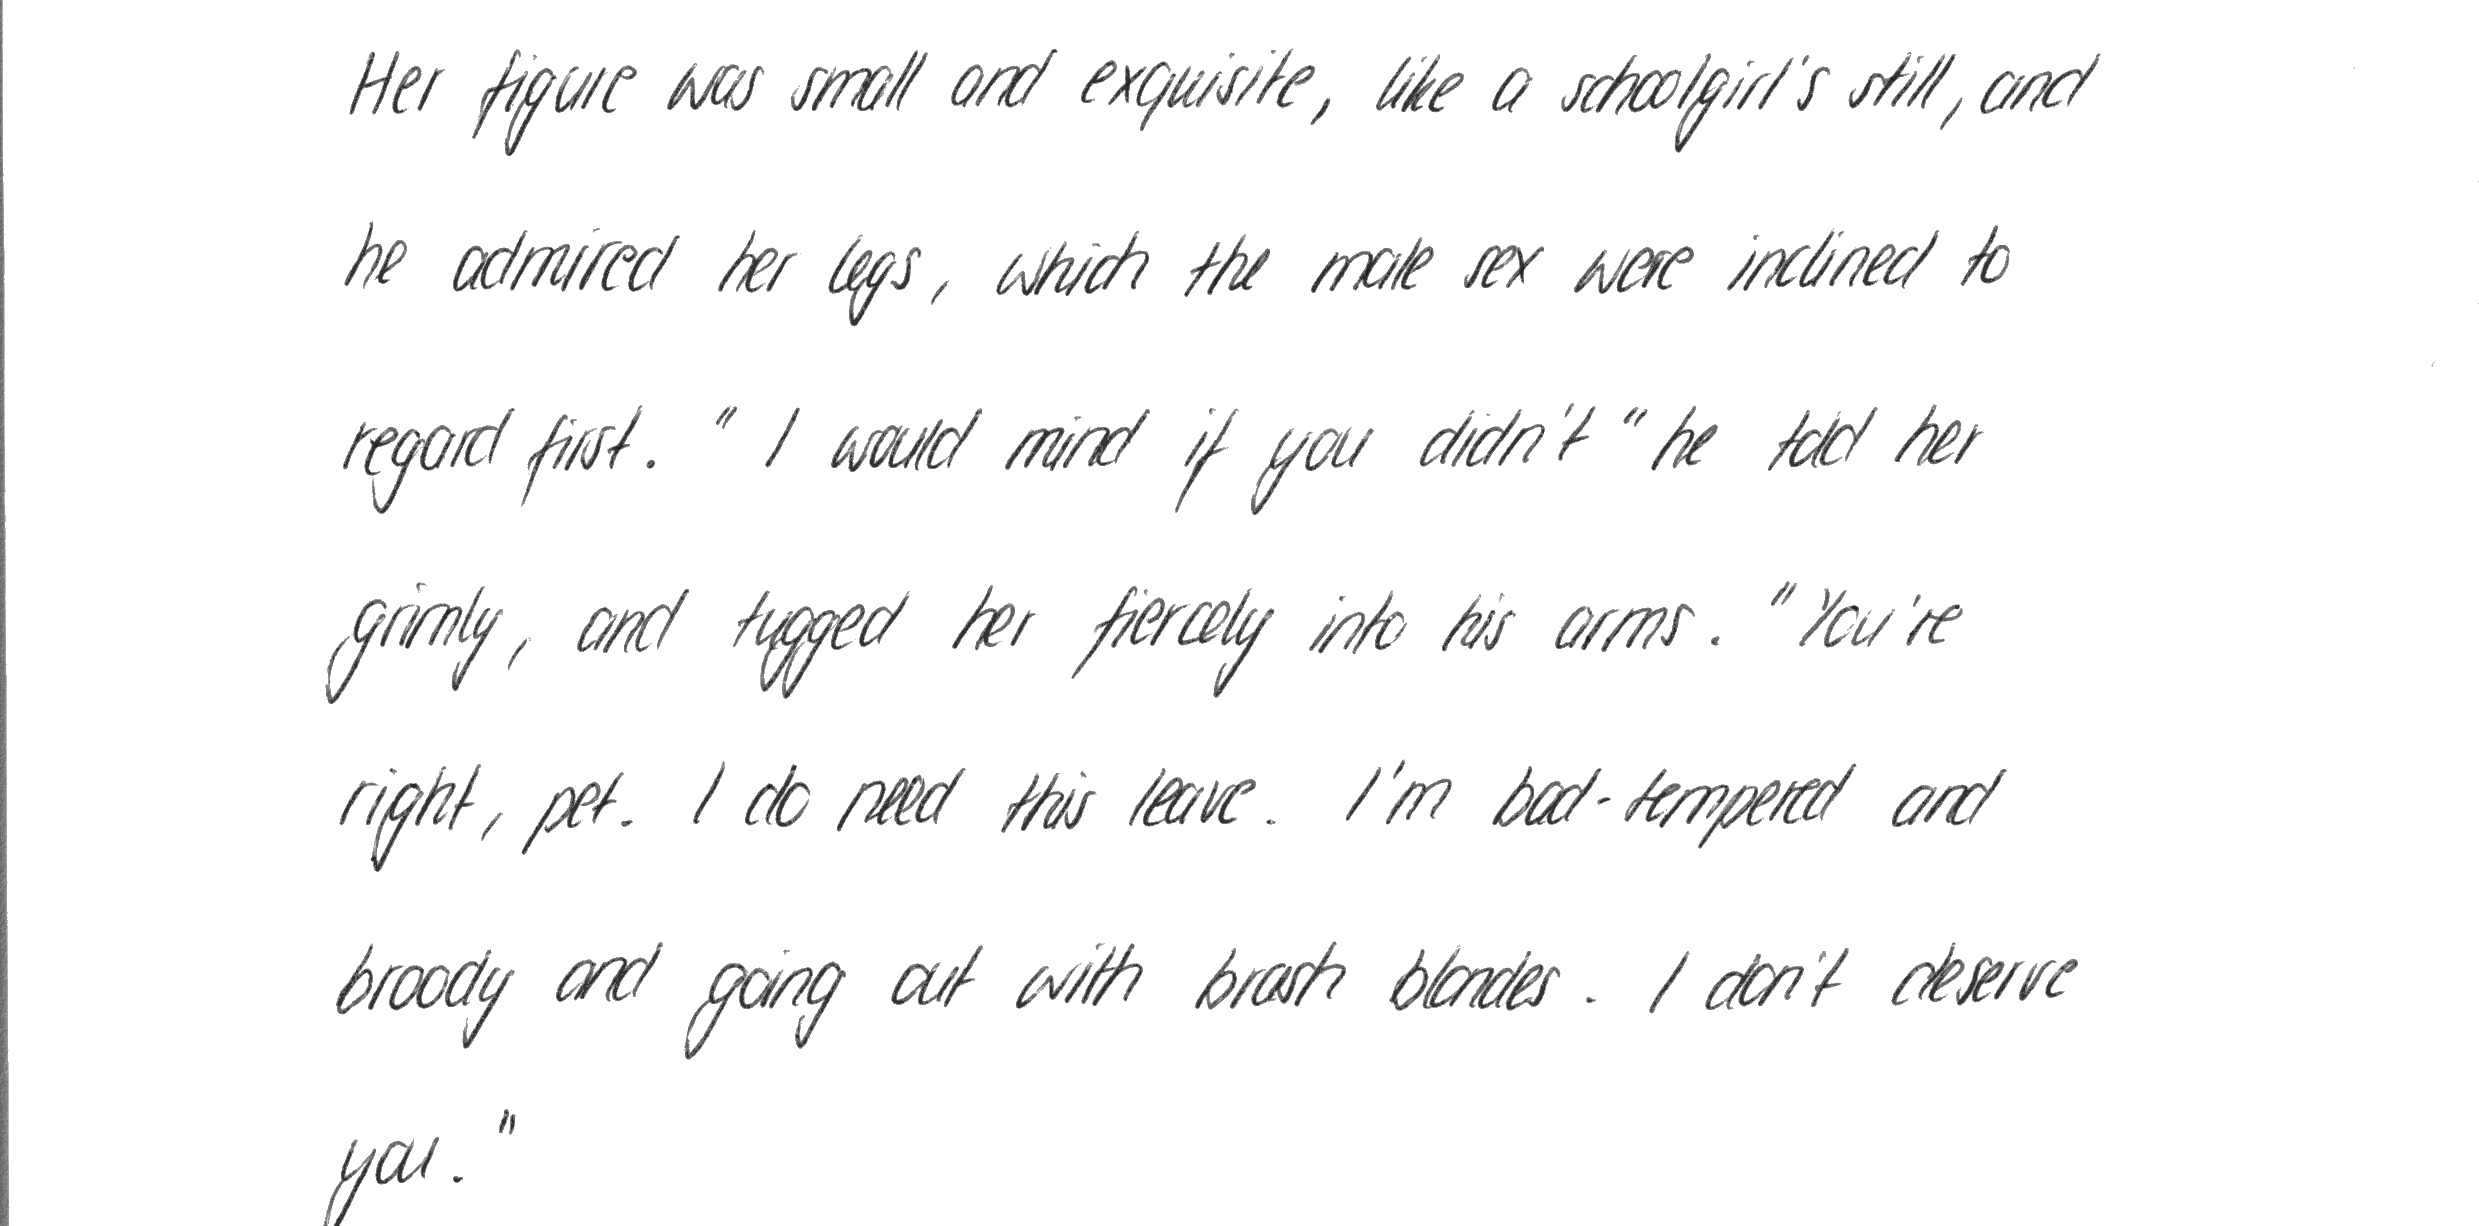 Her figure was small and exquisite, like a schoolgirl's still, and
he admired her legs, which the male sex were inclined to
regard first. "I would mind if you didn't" he told her
grimly, and tugged her fiercely into his arms. "You're
right, pet. I do need this leave. I'm bad-tempered and
broody and going out with brash blondes. I don't deserve
you."